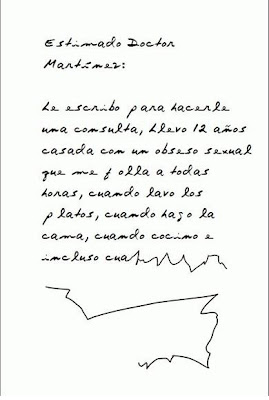 Estimado Doctor
Martínez:
Le escribo para hacerle
una consulta, Llevo 12 años
casada con un obseso sexual
que me folla a todas
horas, cuando lavo los
platos, cuando hago la
cama, cuando cocino e
incluso cua